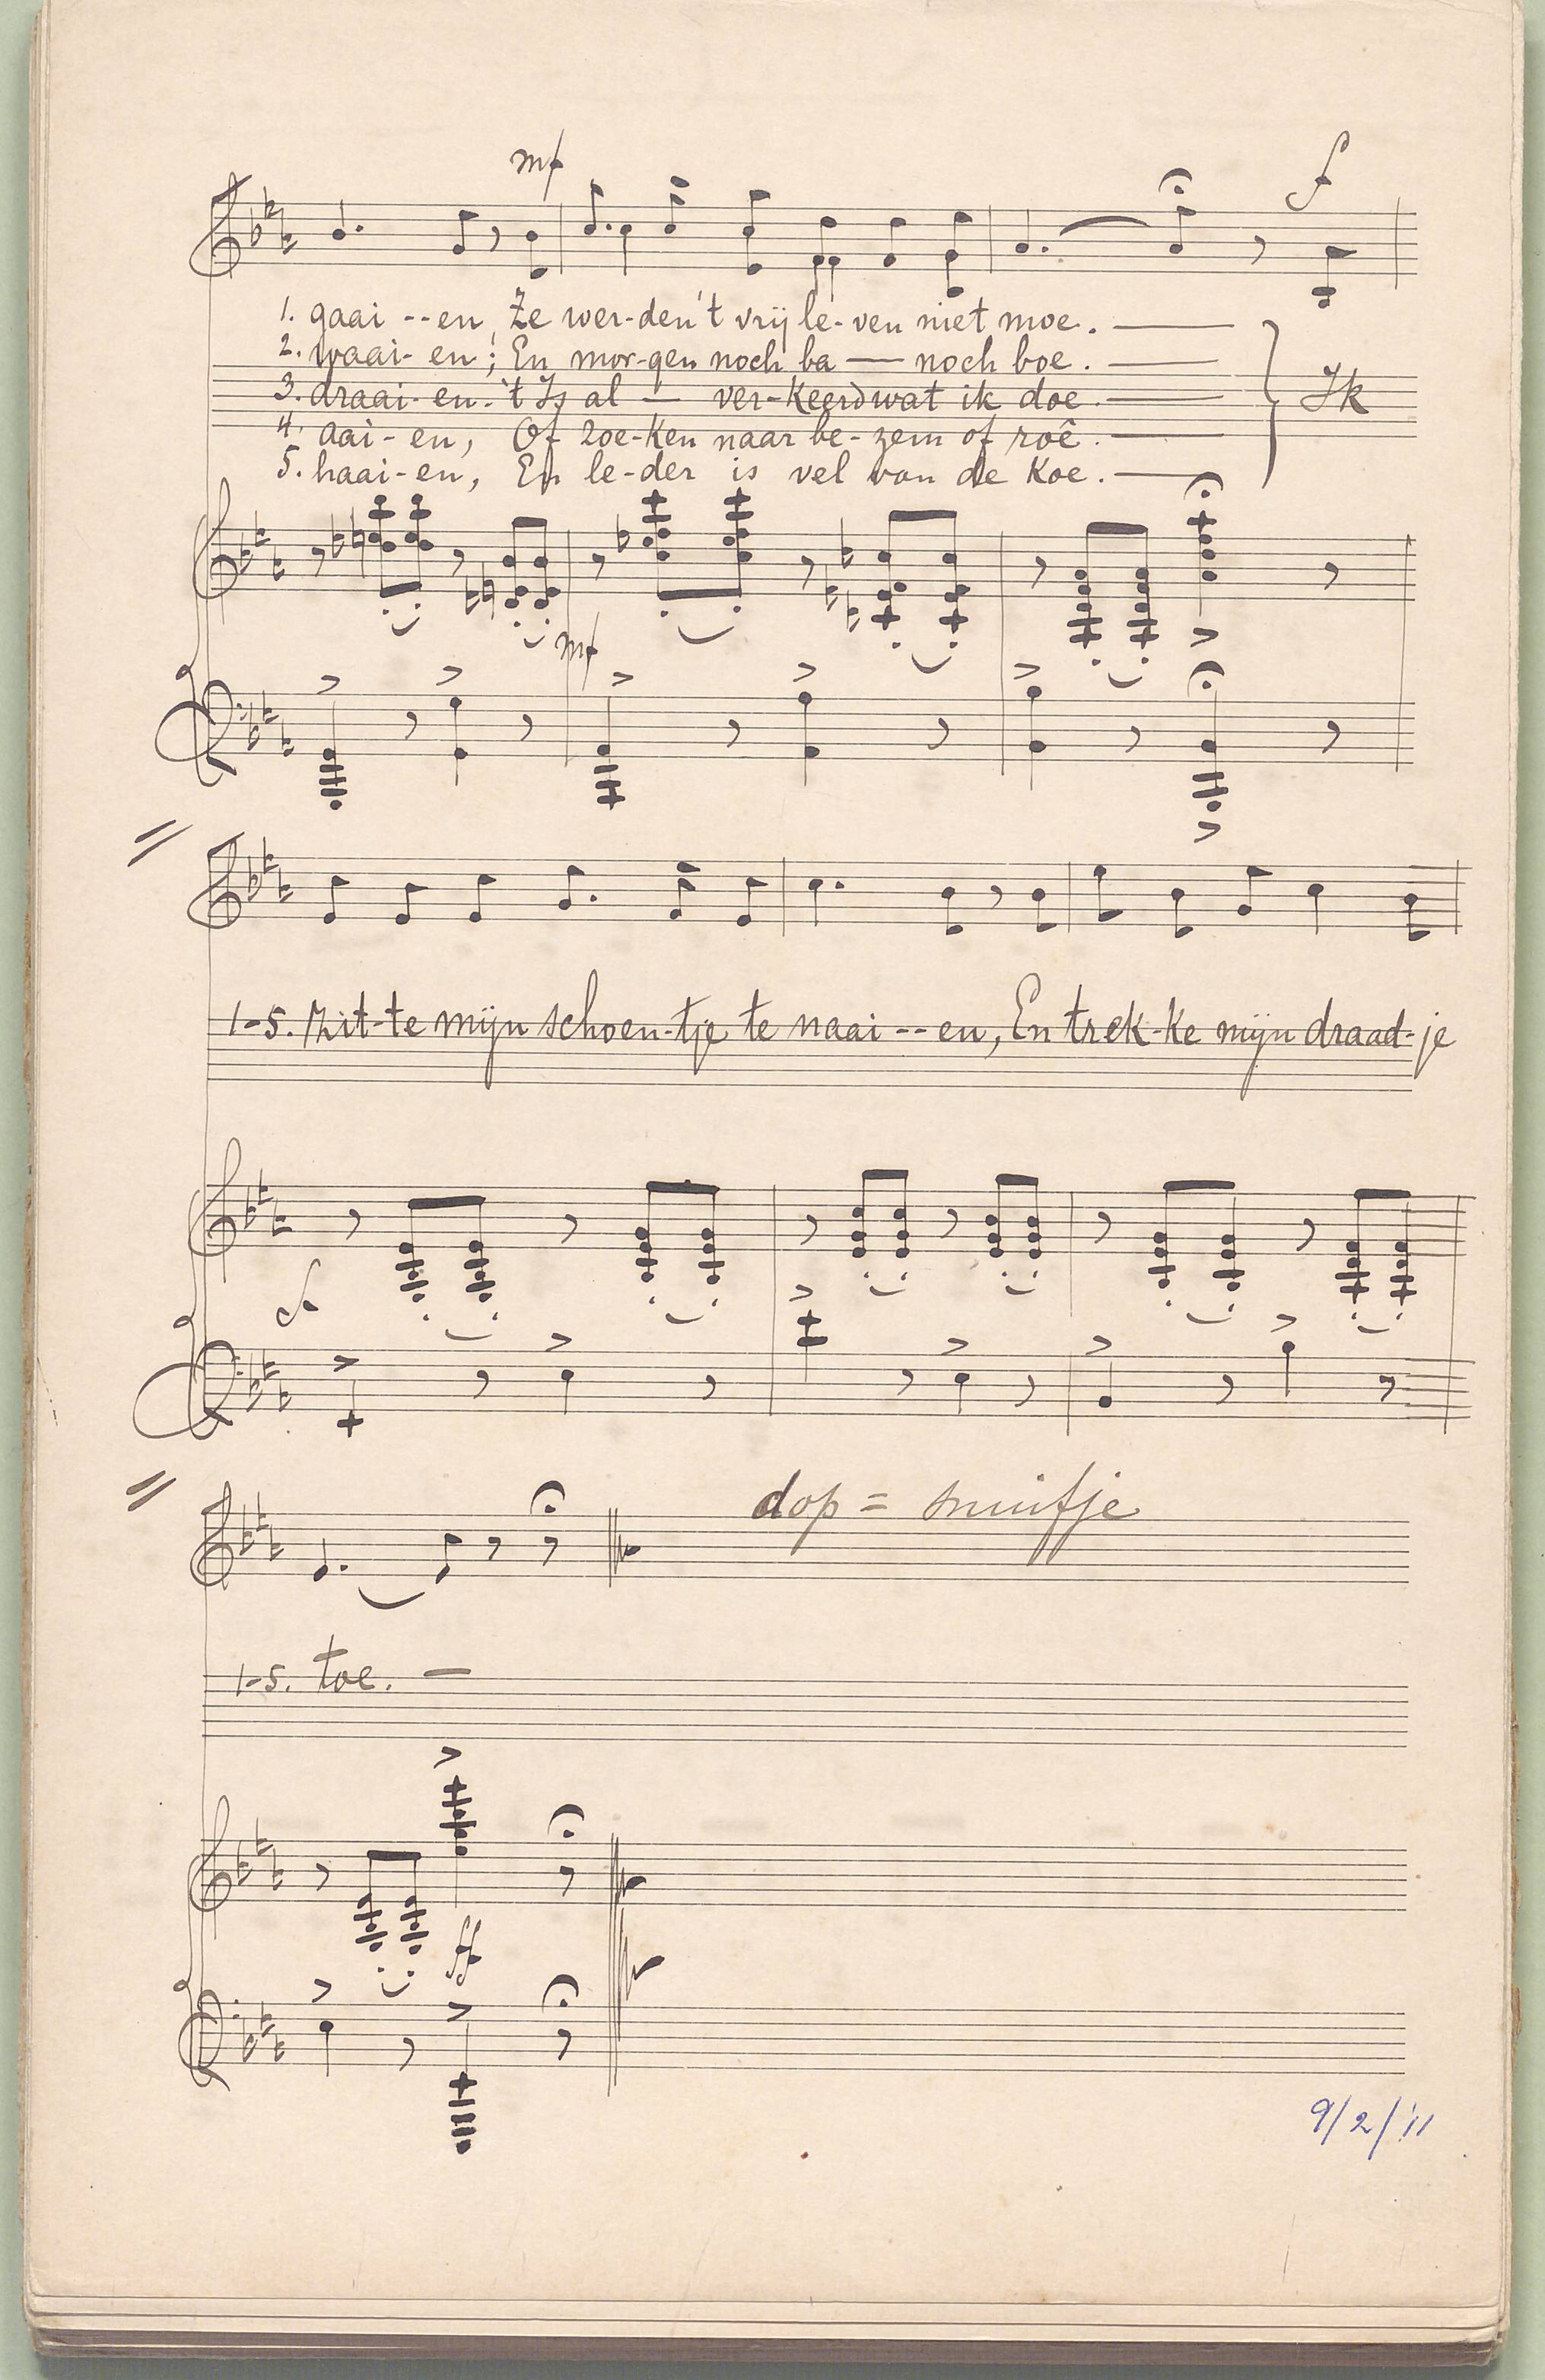 mf
f
1. gaai -- en, Ze wer-den 't vrij le-ven niet moe. —
2. waai- en; En mor-gen noch ba — noch boe. —
3. draai- en. 't Is al — ver-keerd wat ik doe. —
Ik
4. aai- en, Of zoe-ken naar be-zem of roê. —
5. haai- en, En le-der is vel van de koe. —
mf
1-5. Zit-te mijn schoen-tje te naai -- en, En trek-ke mijn draad-je
f
dop = snuifje
1-5. toe. —
ff
9/2/'11